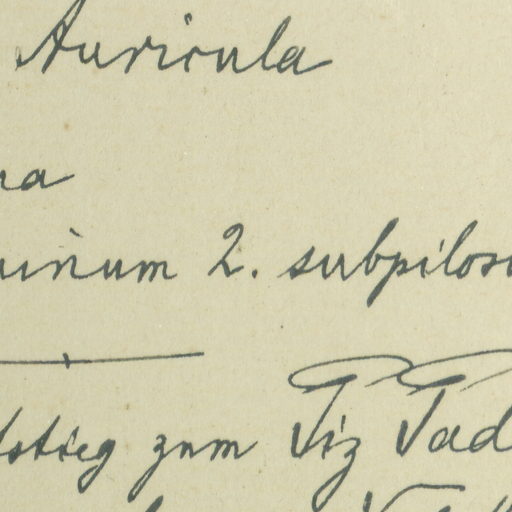 Auricula
na
uinum 2. subpiloso
tstieg zum Piz Pad